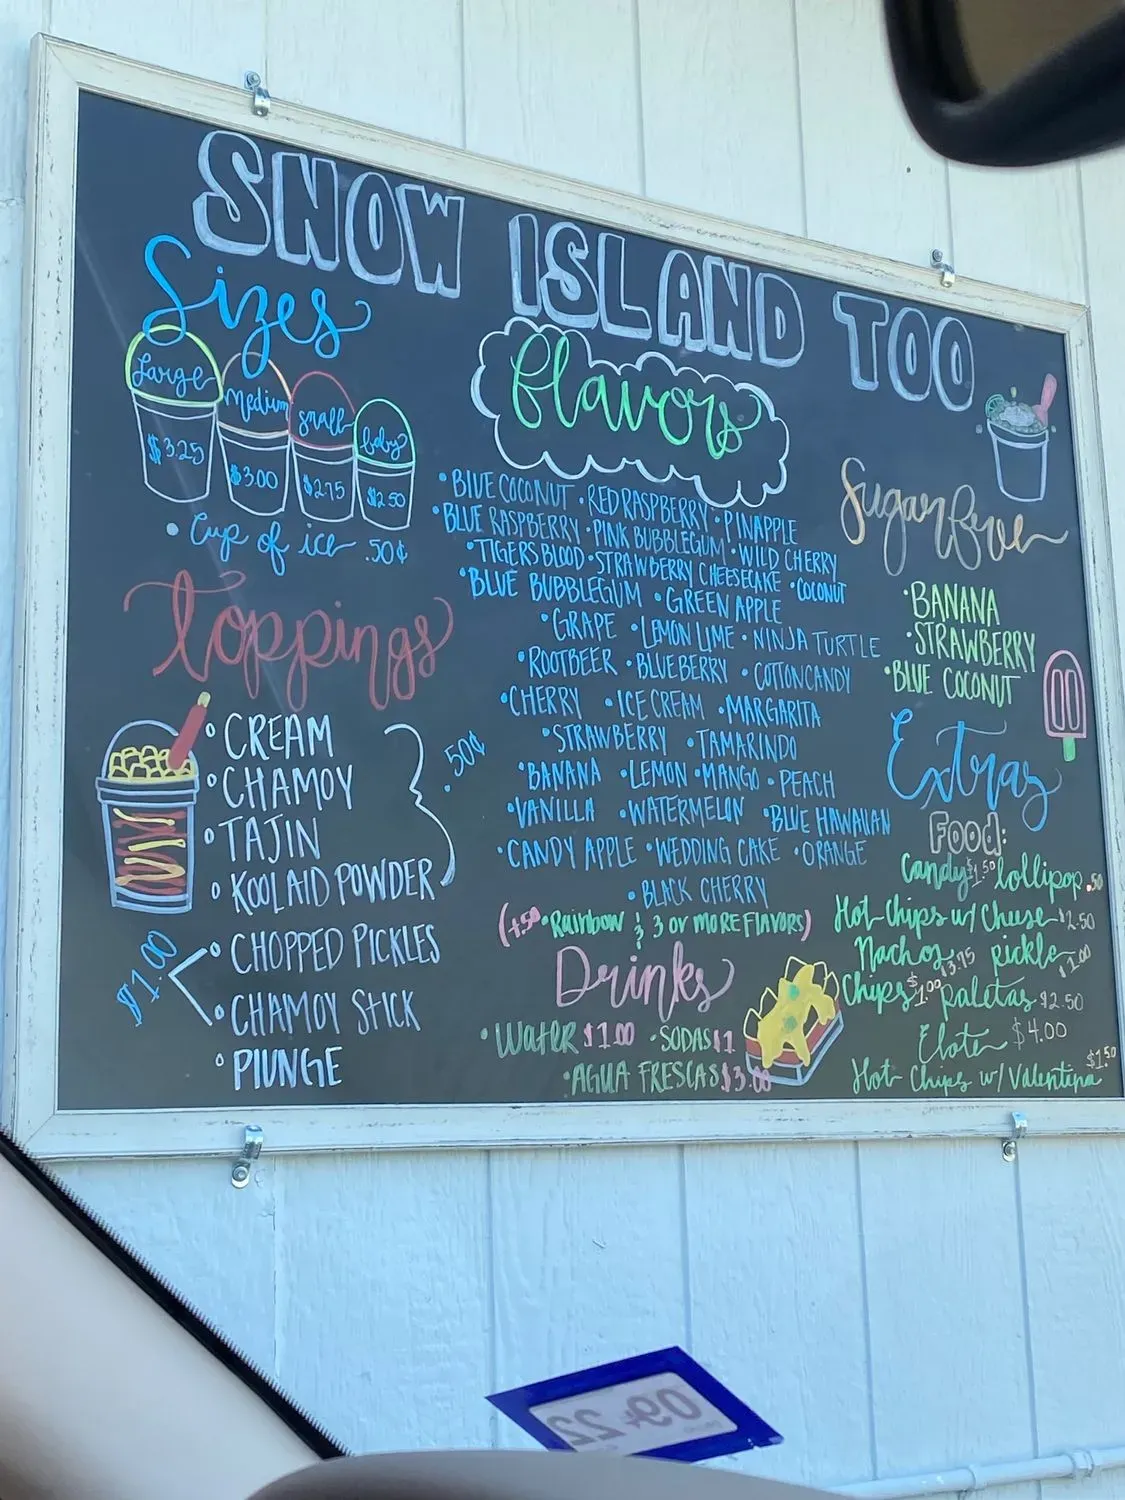 SNOW ISLAND TOO
Sizes
Large
Medium
small
baby
$3.25
$3.00
$2.75
$2.50
• Cup of ice .50¢
Toppings
• CREAM
• CHAMOY
• TAJIN
• KOOLAID POWDER
.50¢
• CHOPPED PICKLES
• CHAMOY STICK
$1.00
• PLUNGE
flavors
• BLUE COCONUT • RED RASPBERRY • PINAPPLE
• BLUE RASPBERRY • PINK BUBBLEGUM • WILD CHERRY
• TIGERS BLOOD • STRAWBERRY CHEESECAKE • COCONUT
• BLUE BUBBLEGUM • GREEN APPLE
• GRAPE • LEMON LIME • NINJA TURTLE
• ROOTBEER • BLUEBERRY • COTTON CANDY
• CHERRY • ICE CREAM • MARGARITA
• STRAWBERRY • TAMARINDO
• BANANA • LEMON • MANGO • PEACH
• VANILLA • WATERMELON • BLUE HAWAIIAN
• CANDY APPLE • WEDDING CAKE • ORANGE
• BLACK CHERRY
(+.50 • Rainbow & 3 OR MORE FLAVORS)
Drinks
• Water $1.00 • SODAS $1
• AGUA FRESCAS $3.00
Sugar free
• BANANA
• STRAWBERRY
• BLUE COCONUT
Extras
Food:
Candy $1.50 lollipop .50
Hot Chips w/ Cheese $2.50
Nachos $3.75 pickle $1.00
Chips $1.00 paletas $2.50
Elote $4.00
Hot Chips w/ Valentina $1.50
09 22